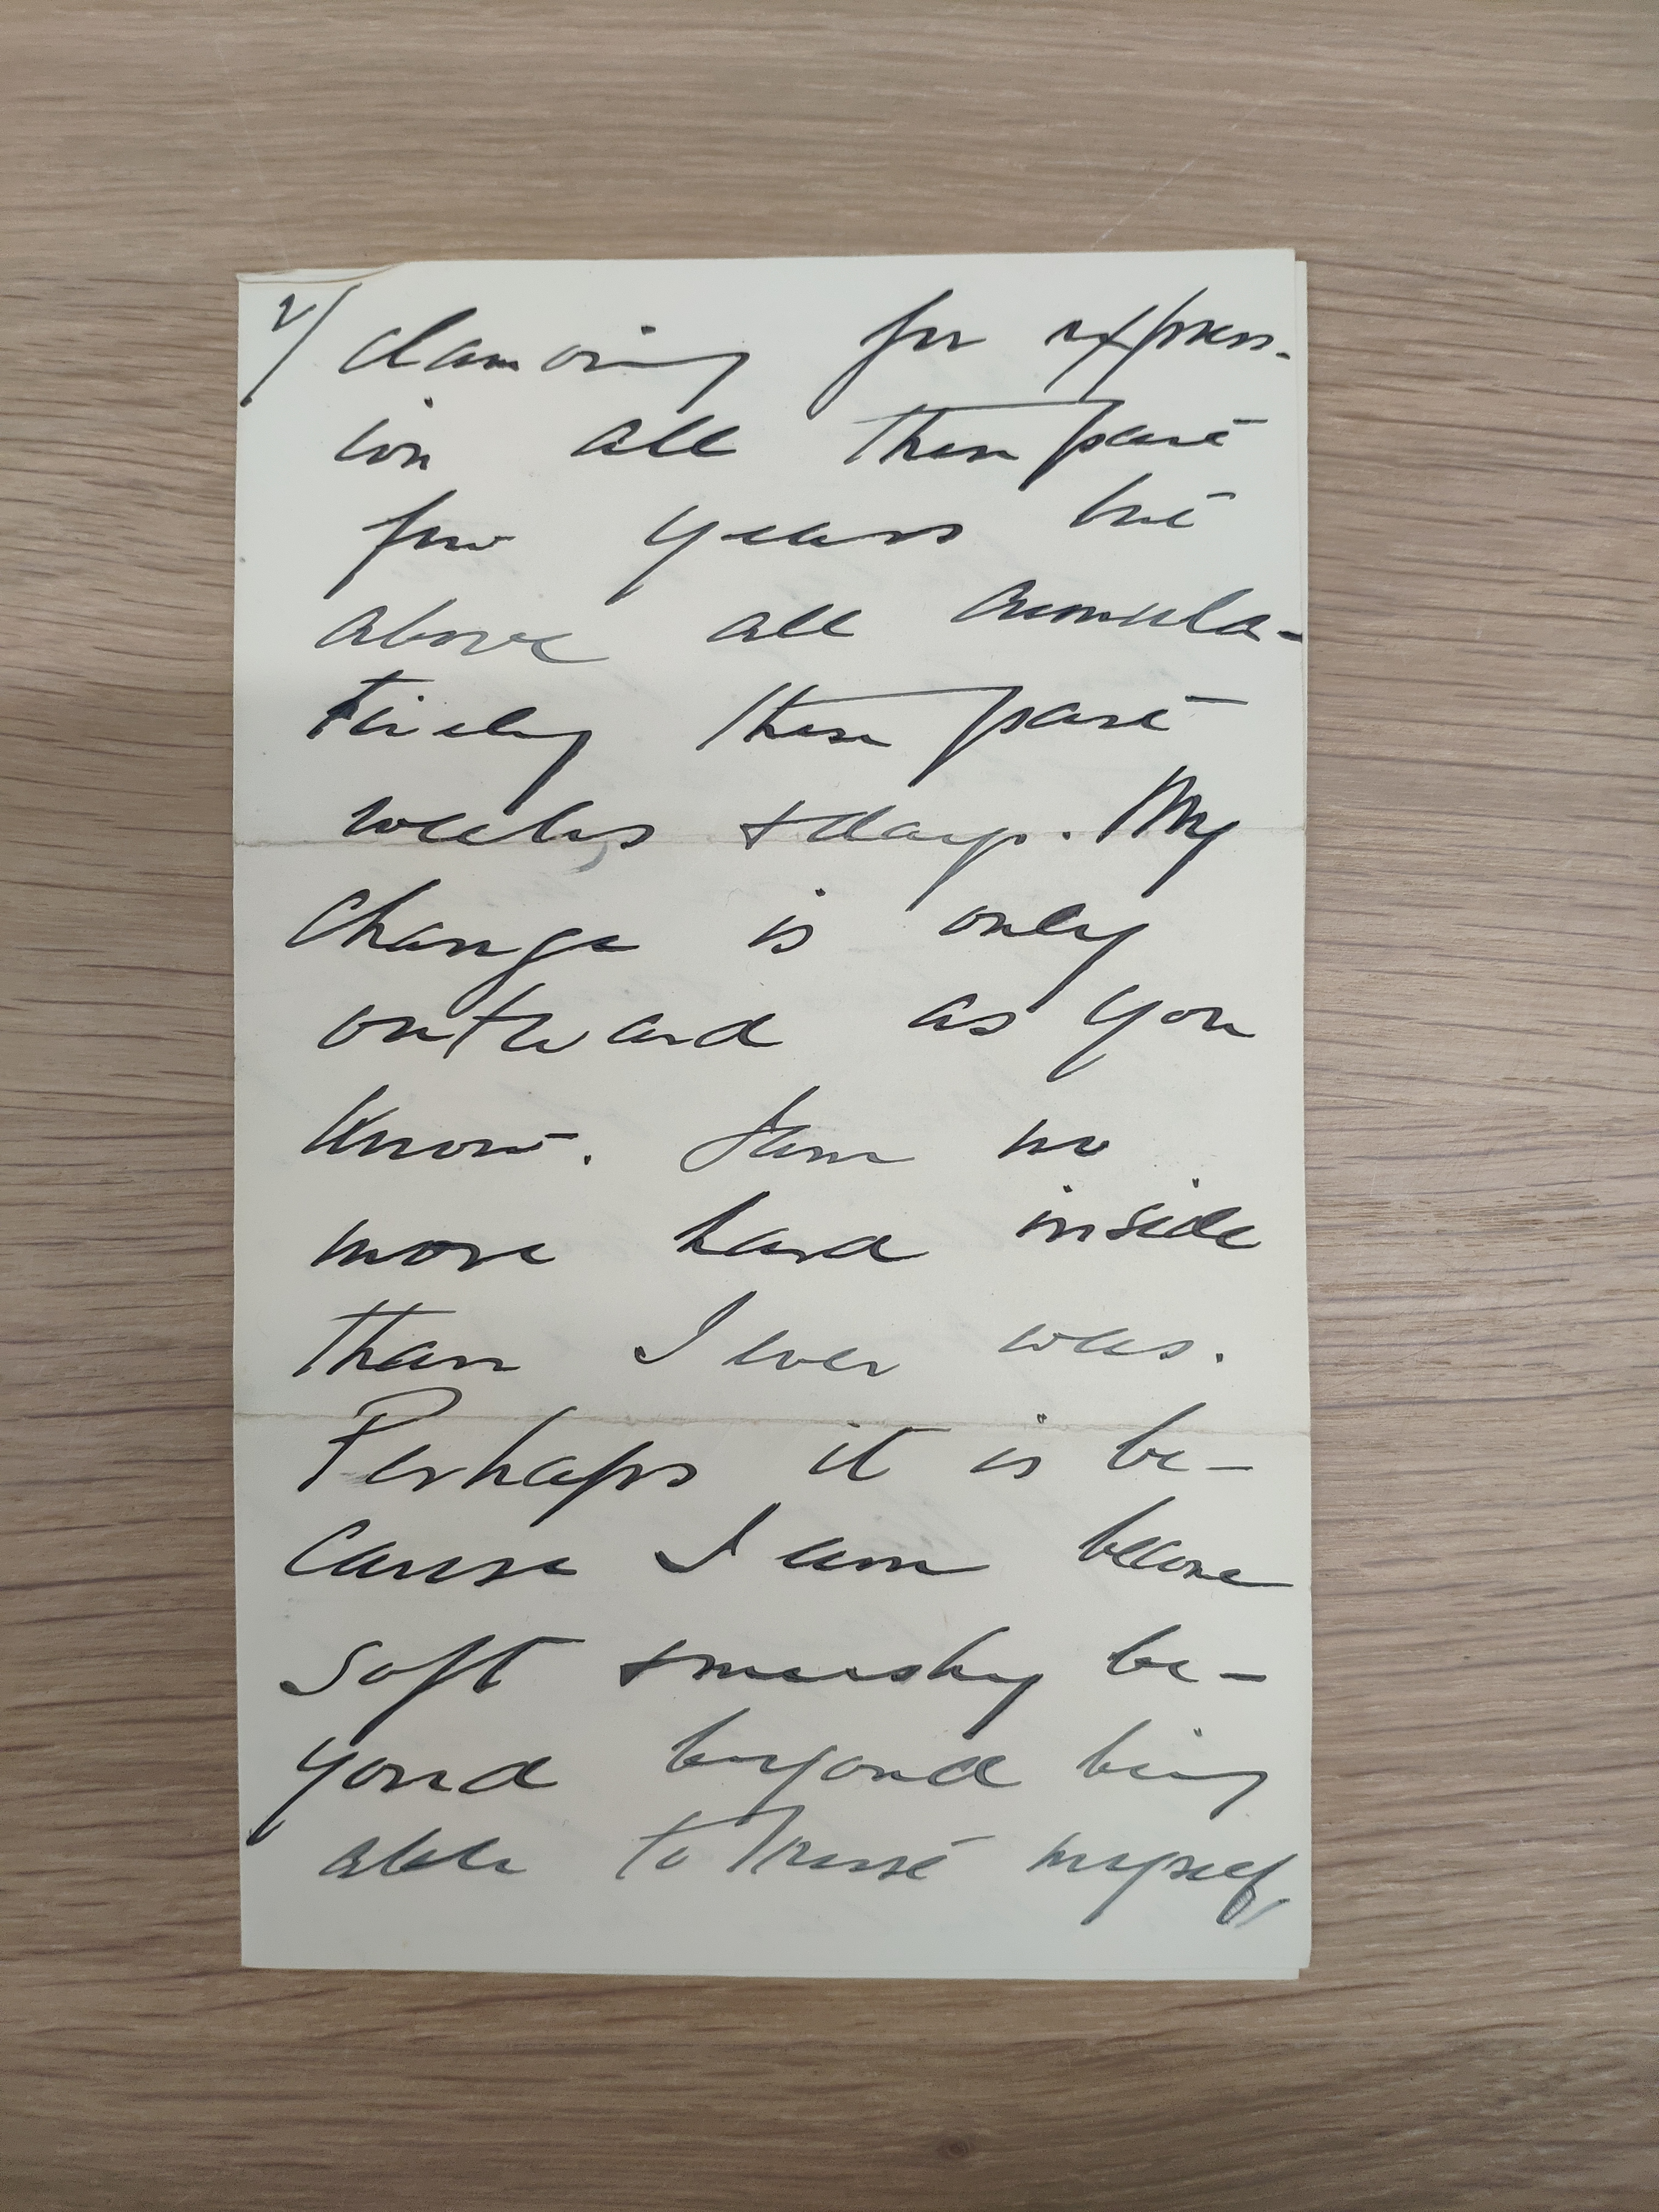 2/ clamoring for express-
ion all these past
few years but
above all cumula-
tively these past
weeks & days. My
change is only
outward as you
know. I am no
more hard inside
than I ever was.
Perhaps it is be-
cause I am become
soft & mushy be-
yond beyond being
able to trust myself,